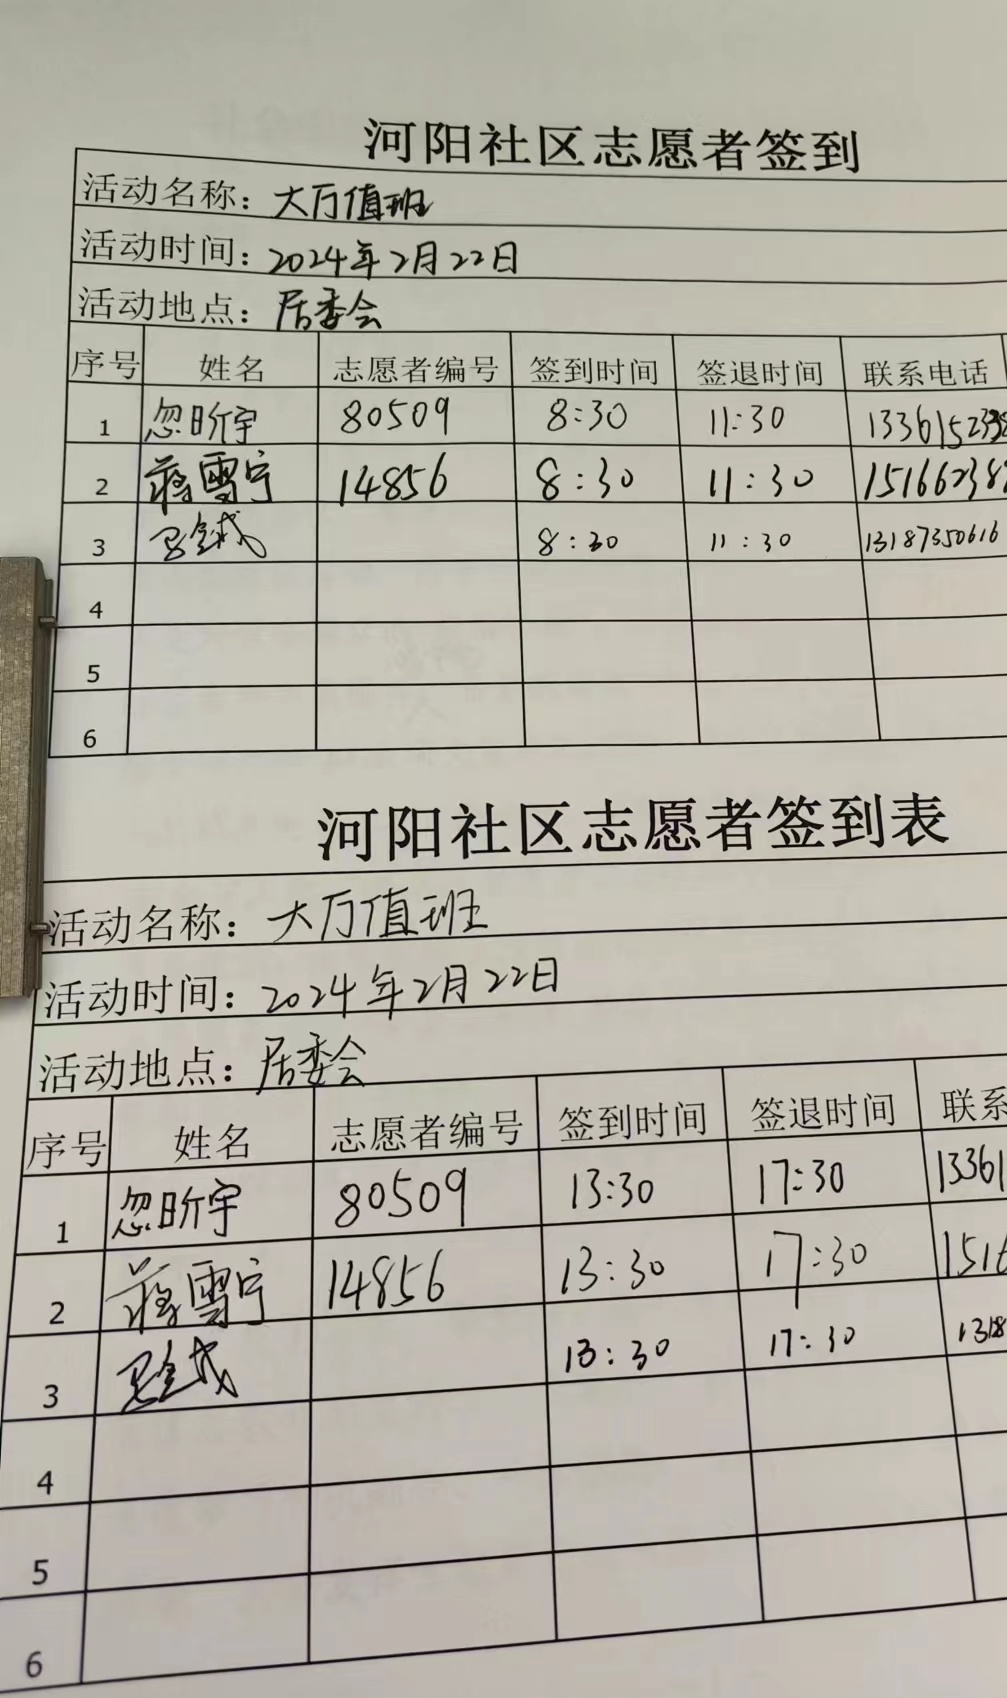 河阳社区志愿者签到
活动名称：大厅值班
活动时间：2024年2月22日
活动地点：居委会
序号 姓名 志愿者编号 签到时间 签退时间 联系电话
1 忽昕宇 80509 8:30 11:30 133615
2 蒋雪宁 14856 8:30 11:30 15166238
3 8:30 11:30 13187350616
4
5
6
河阳社区志愿者签到表
活动名称：大厅值班
活动时间：2024年2月22日
活动地点：居委会
序号 姓名 志愿者编号 签到时间 签退时间 联系
1 忽昕宇 80509 13:30 17:30 13361
2 蒋雪宁 14856 13:30 17:30 1516
3 13:30 17:30 1318
4
5
6